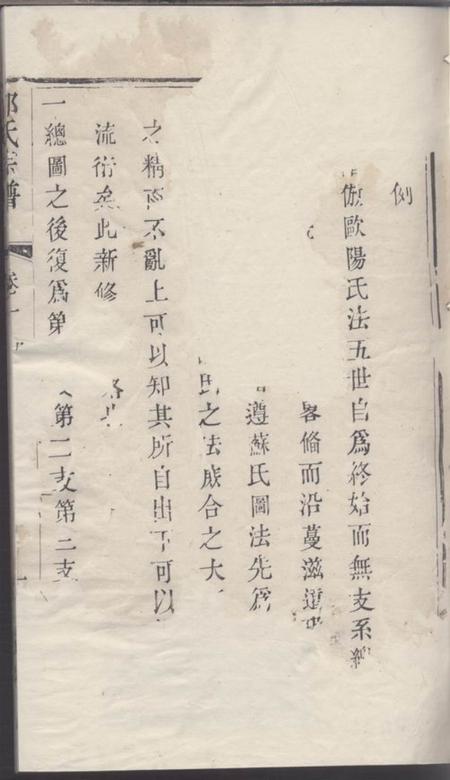 例
倣歐陽氏法五世自爲終始而無支系
畧脩而沿蔓滋
遵蘇氏圖法先爲
氏之法成合之大
之精而不亂上可以知其所自出下可以
流衍矣此新修
一總圖之後復爲第
第二支第三支
氏宗譜
卷一